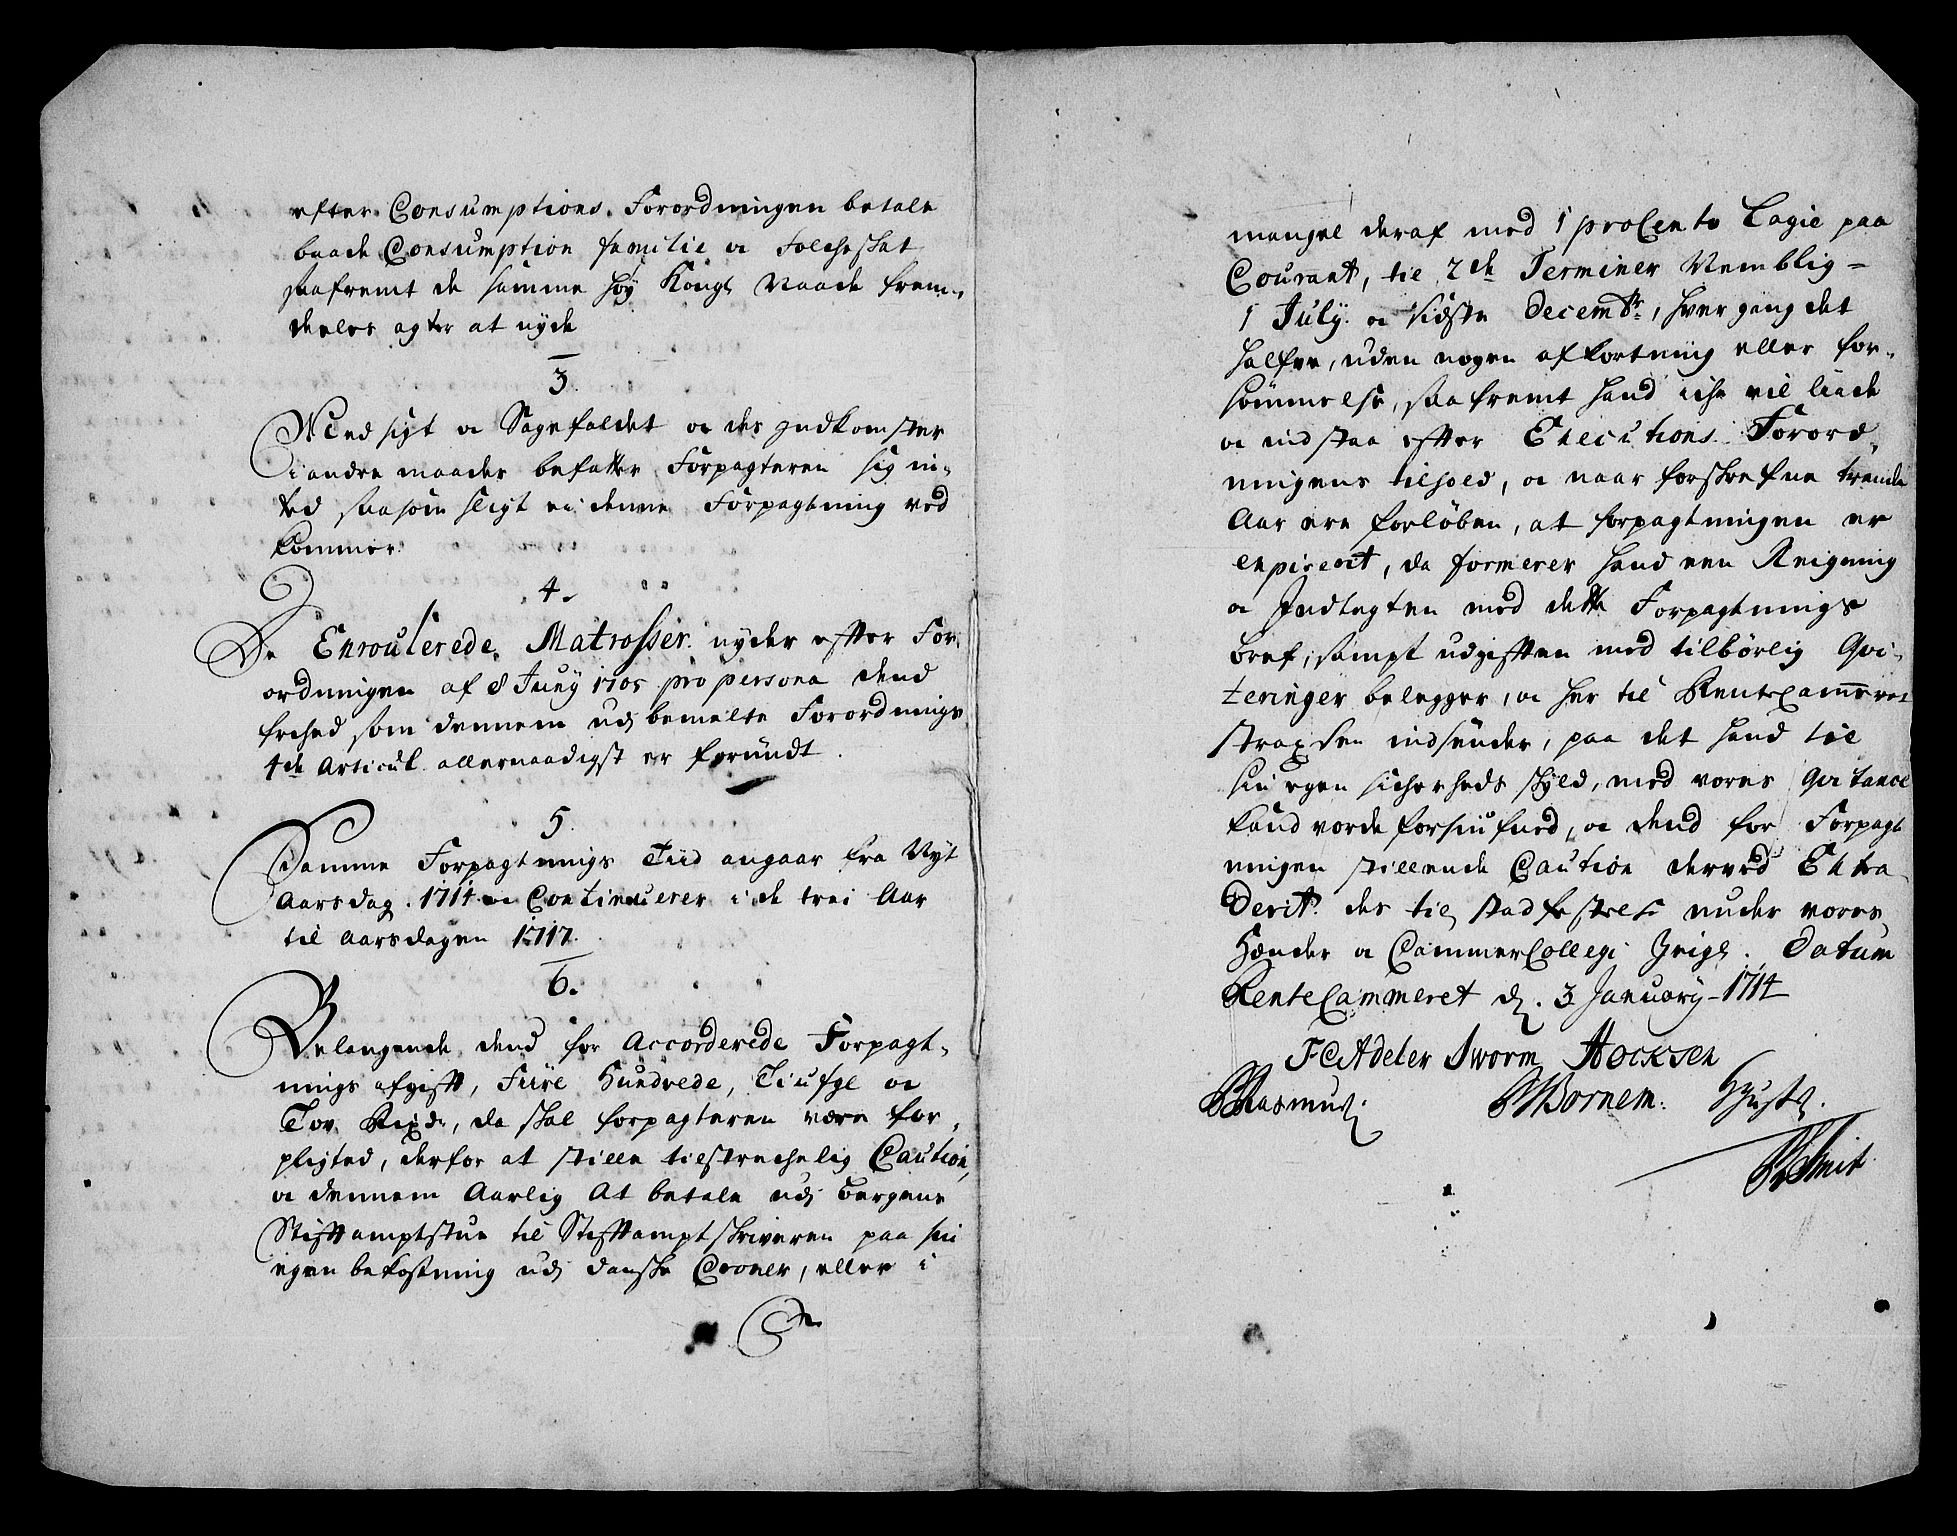 efter Consumptions Forordningen betale
baade Consumption familie oc Folcheskat
saafremt de samme høy Kongl Naade frem-
deeles agter at nyde
3.
Med sigt oc Sagefaldet oc des Indkomster
i andre maader befatter Forpagteren sig in-
ted saasom sligt ei denne Forpagtning ved
kommer.
4.
De Enroulerede Matrosser nyder efter For-
ordningen af 8 Juny 1705 pro persona dend
frihed som dennem udj bemelte Forordnings
4de Articul allernaadigst er forundt.
5.
Samme Forpagtnings Tiid angaar fra Nyt
Aarsdag 1714 oc Continuerer i de trei Aar
til Aarsdagen 1717.
6.
Belangende dend for Accorderede Forpagt-
nings afgifft, Fiire Hundrede, Tiufge oc
Tov Rixdr, da skal forpagteren være for-
pligted, derfor at stille tilstrechelig Caution,
oc dennem Aarlig At betale udj Bergens
Stifftamptstue til Stifftamptskriveren paa sin
egen bekostning udj danske Croner, eller i
mangel deraf med 1 proCento Lagie paa
Courant, til 2de Terminer Nemblig-
1 July oc sidste Decembr, hver gang det
halfve, uden nogen afkortning eller for-
sømmelse, saafremt hand iche vil liide
oc indstaa efter Executions Forord-
ningens tilhold, oc naar forskrefne trende
Aar ere forløben, at forpagtningen er
expireret, da formerer hand een Reigning
oc Indtegten med dette Forpagtnings
bref, sampt udgifften med tilbørlig Qvi-
teringer belegger, oc her til RenteCammeret
strax den indsender, paa det hand til
sin egen sicherheds skyld, med vores Qvitance
kand vorde forsiufned, oc dend for Forpagt
ningen stillende Caution derved Extra-
derit. des til stadfestelse under vores
Hænder oc CammerCollegi Zeigl. Datum
RenteCammeret d. 3 January 1714
FCAdeler Sworm Hocksen
Rasmus. Bornem.
Smit